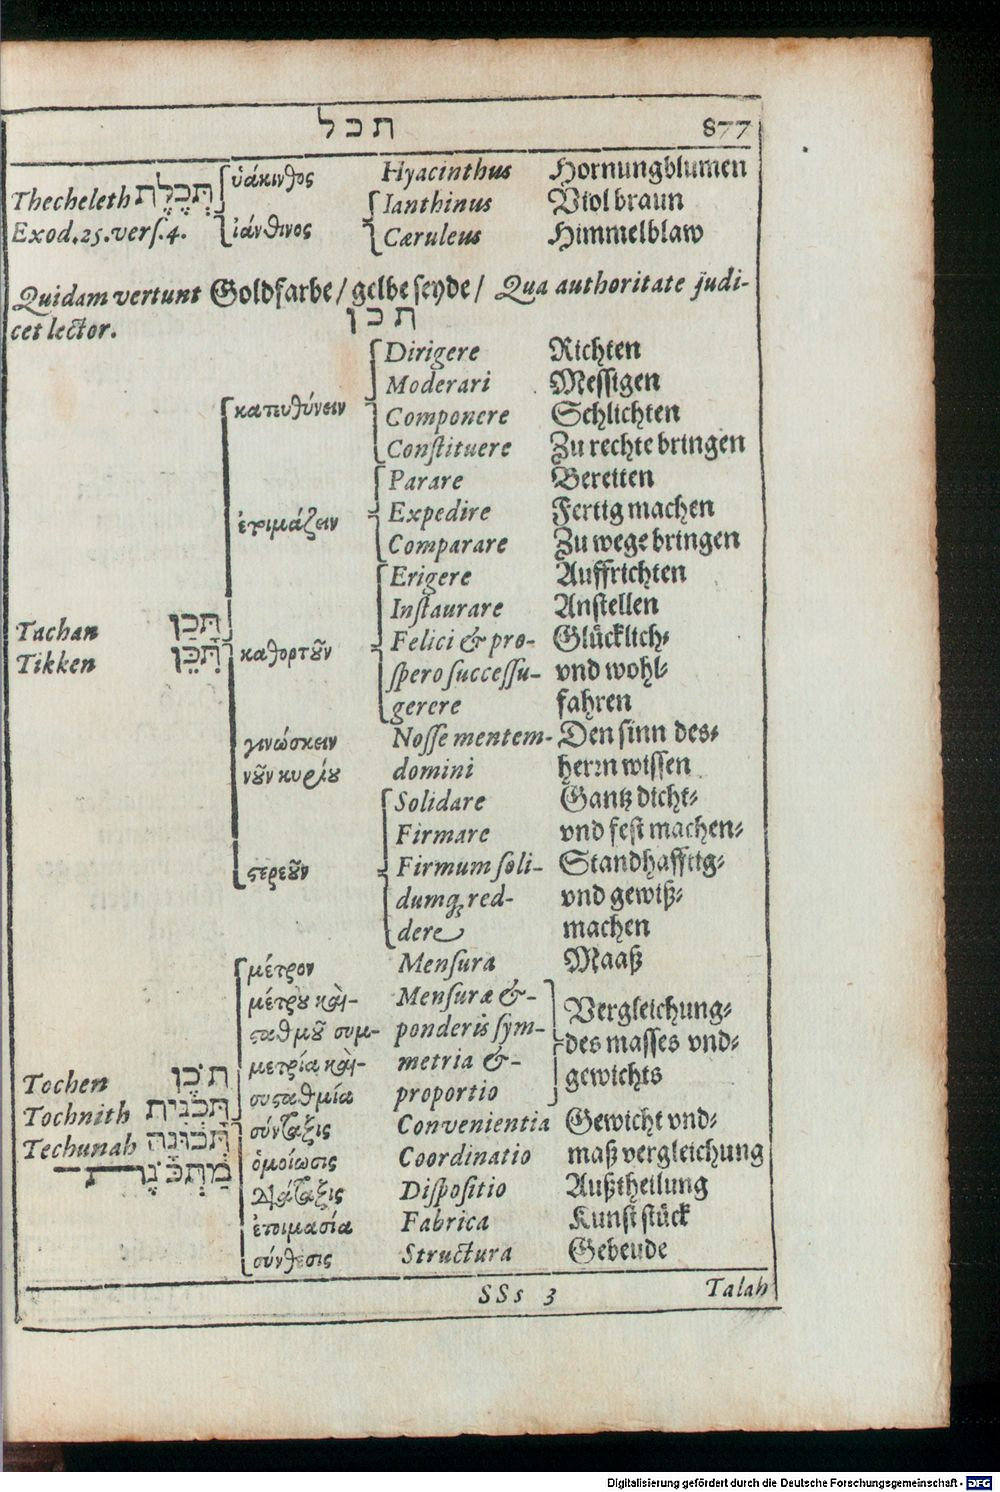 תכל 877
Thecheleth תְּכֵלֶת ὑάκινθος Hyacinthus Hornungblumen
Ianthinus Viol braun
Exod.25.verſ.4. ἰάνθινος Cæruleus Himmelblaw
Quidam vertunt Goldfarbe/ gelbe ſeyde/ Qua authoritate judi-
cet lector.
תכן
Dirigere Richten
Moderari Meſſigen
κατευθύνειν Componere Schlichten
Conſtituere Zu rechte bringen
Parare Bereiten
ἑτοιμάζειν Expedire Fertig machen
Comparare Zu wege bringen
Erigere Auffrichten
Inſtaurare Anſtellen
Tachan תָּכַן Felici & pro- Glücklich-
Tikken תִּכֵּן καθορτοῦν ſpero ſucceſſu- vnd wohl-
gerere fahren
γινώσκειν Noſſe mentem- Den ſinn des-
νοῦν κυρίου domini herrn wiſſen
Solidare Gantz dicht-
Firmare vnd feſt machen-
στερεοῦν Firmum ſoli- Standhafftig-
dumq; red- vnd gewiß-
dere machen
μέτρον Menſura Maaß
μέτρου καὶ- Menſuræ &- Vergleichung-
σταθμοῦ συμ- ponderis ſym- des maſſes vnd-
μετρία καὶ- metria &- gewichts
Tochen תֹכֶן συσταθμία proportio
Tochnith תָּכְנִית σύνταξις Convenientia Gewicht vnd-
Techunah תְּכוּנָה ὁμοίωσις Coordinatio maß vergleichung
מַתְכֹּנֶת διάταξις Diſpoſitio Außtheilung
ἑτοιμασία Fabrica Kunſt ſtück
σύνθεσις Structura Gebeude
SSs 3 Talah
Digitalisierung gefördert durch die Deutsche Forschungsgemeinschaft - DFG